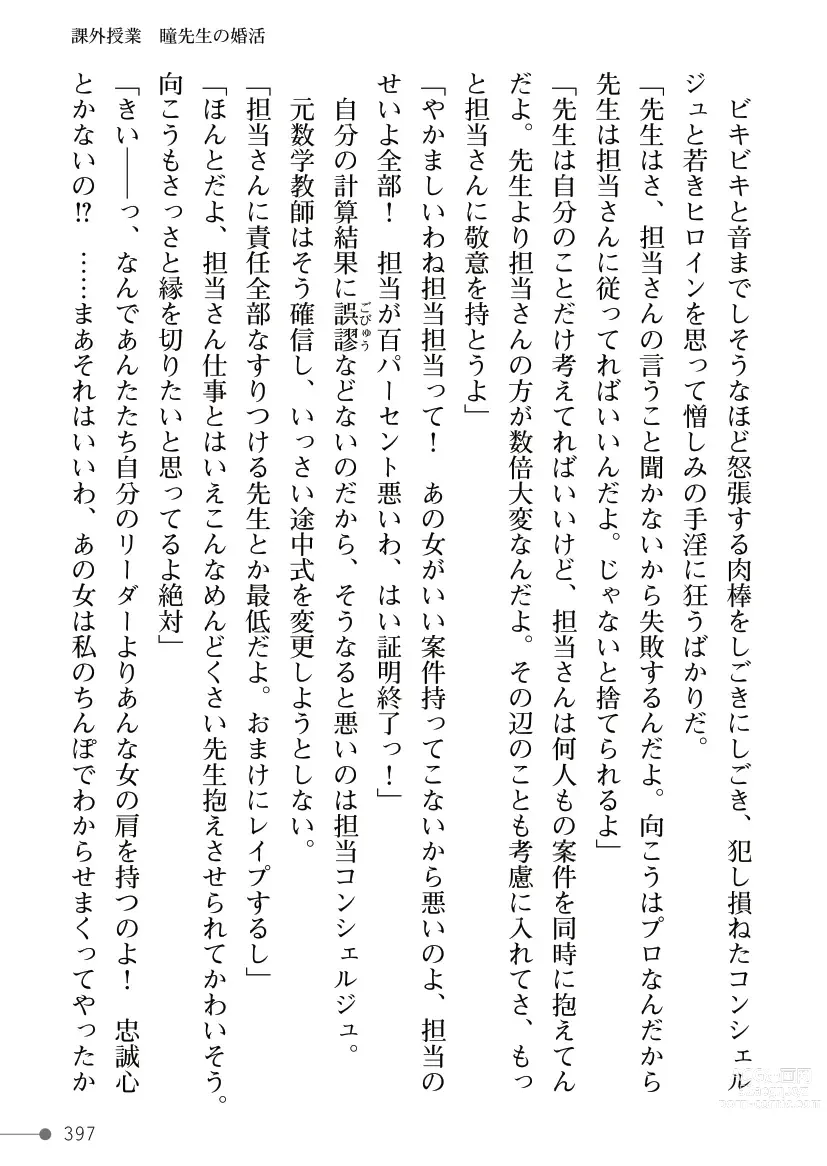 課外授業　瞳先生の婚活
ビキビキと音までしそうなほど怒張する肉棒をしごきにしごき、犯し損ねたコンシェル
ジュと若きヒロインを思って憎しみの手淫に狂うばかりだ。
「先生はさ、担当さんの言うこと聞かないから失敗するんだよ。向こうはプロなんだから
先生は担当さんに従ってればいいんだよ。じゃないと捨てられるよ」
「先生は自分のことだけ考えてればいいけど、担当さんは何人もの案件を同時に抱えてん
だよ。先生より担当さんの方が数倍大変なんだよ。その辺のことも考慮に入れてさ、もっ
と担当さんに敬意を持とうよ」
「やかましいわね担当担当って！　あの女がいい案件持ってこないから悪いのよ、担当の
せいよ全部！　担当が百パーセント悪いわ、はい証明終了っ！」
自分の計算結果に誤謬などないのだから、そうなると悪いのは担当コンシェルジュ。
ごびゅう
元数学教師はそう確信し、いっさい途中式を変更しようとしない。
「担当さんに責任全部なすりつける先生とか最低だよ。おまけにレイプするし」
「ほんとだよ、担当さん仕事とはいえこんなめんどくさい先生抱えさせられてかわいそう。
向こうもさっさと縁を切りたいと思ってるよ絶対」
「きい――っ、なんであんたたち自分のリーダーよりあんな女の肩を持つのよ！　忠誠心
とかないの!?　……まあそれはいいわ、あの女は私のちんぽでわからせまくってやったか
397